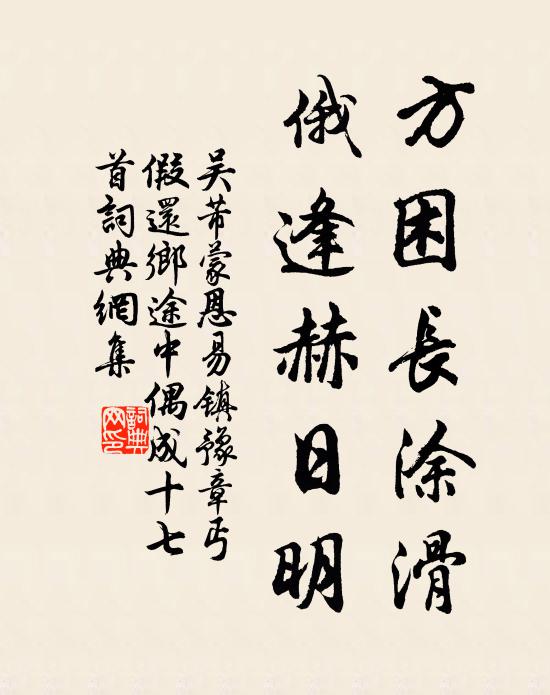 方困長涂滑
俄逢赫日明
吴芾蒙恩易鎮豫章丐
假還鄉途中偶成十七
首詞典網集
詞典网印